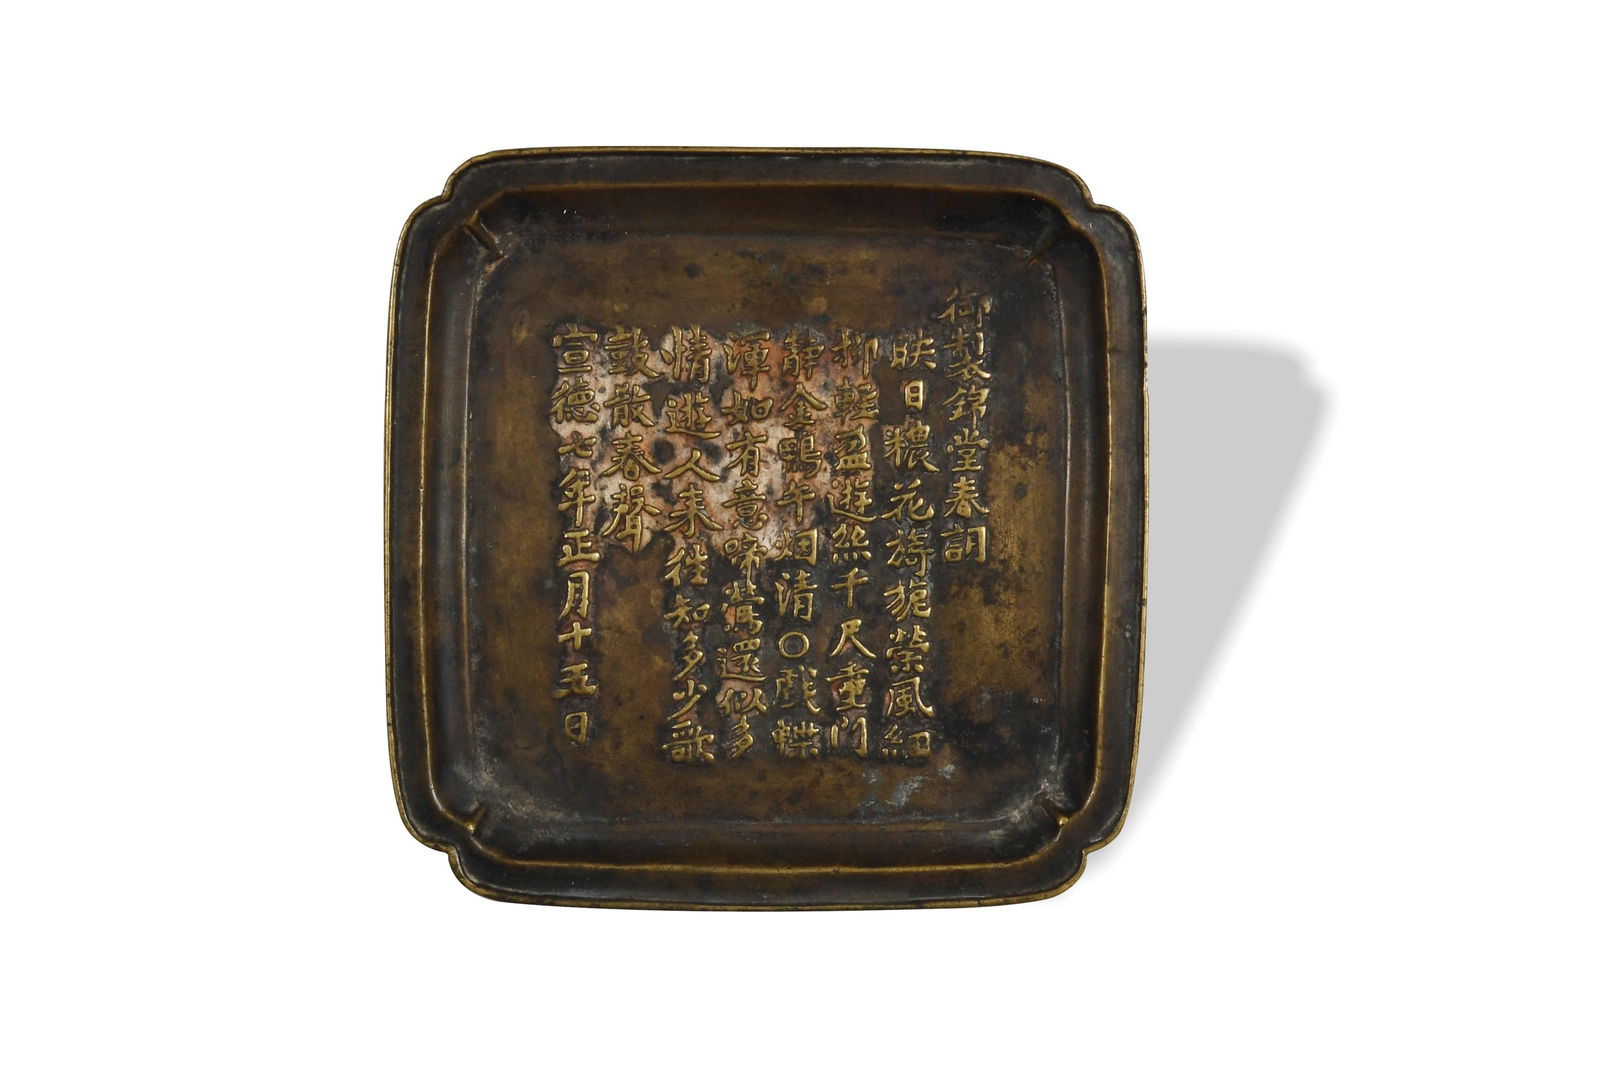 御製錦堂春詞
映日穠花旖旎縈風細
柳輕盈遊絲千尺重門
靜金鴨午烟清〇戲蝶
渾如有意啼鶯還似多
情遊人来徃知多少歌
鼓散春聲
宣德七年正月十五日